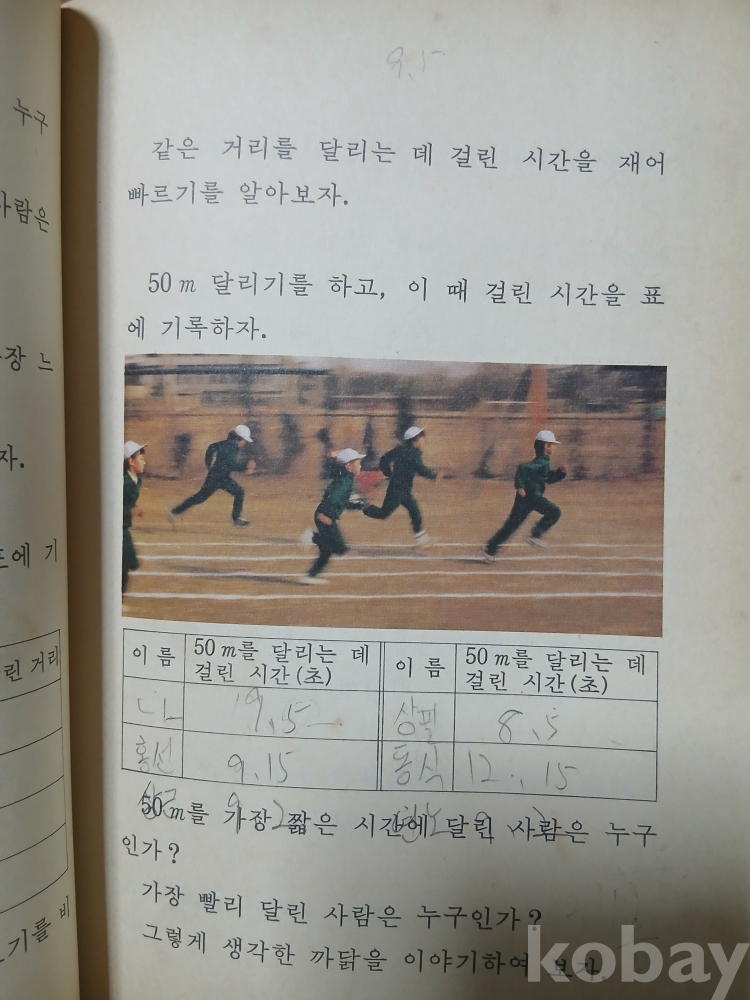 9.5
누구
사람은
자.
에 기
린 거리
기를 비
같은 거리를 달리는 데 걸린 시간을 재어
빠르기를 알아보자.
50 m 달리기를 하고, 이 때 걸린 시간을 표
에 기록하자.
이 름 50 m를 달리는 데 걸린 시간(초) 이 름 50 m를 달리는 데 걸린 시간(초)
나 9.5 상필 8.5
홍선 9.15 동식 12.15
50 m를 가장 짧은 시간에 달린 사람은 누구
인가?
가장 빨리 달린 사람은 누구인가?
그렇게 생각한 까닭을 이야기하여 보자.
kobay